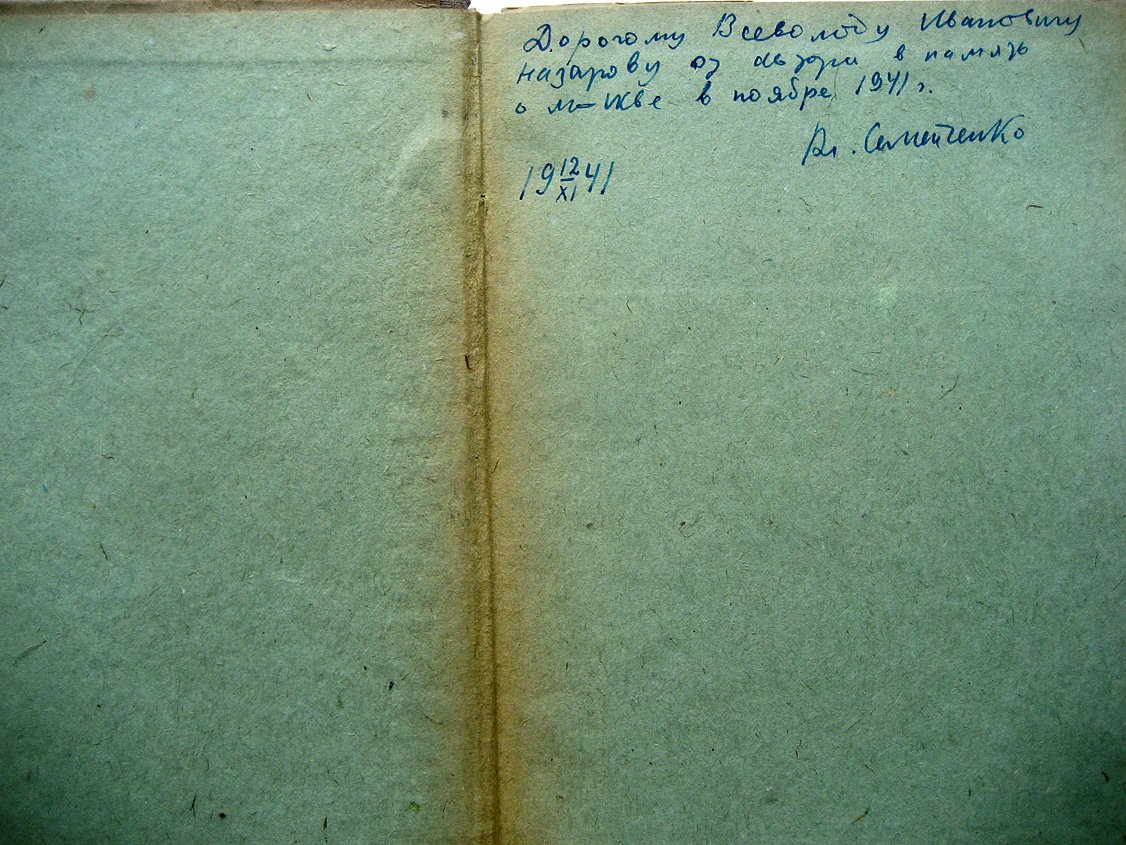 Дорогому Всеволоду Ивановичу
Назарову от автора в память
о Москве в ноябре 1941 г.
Вл. Семенченко
19 12/XI 41